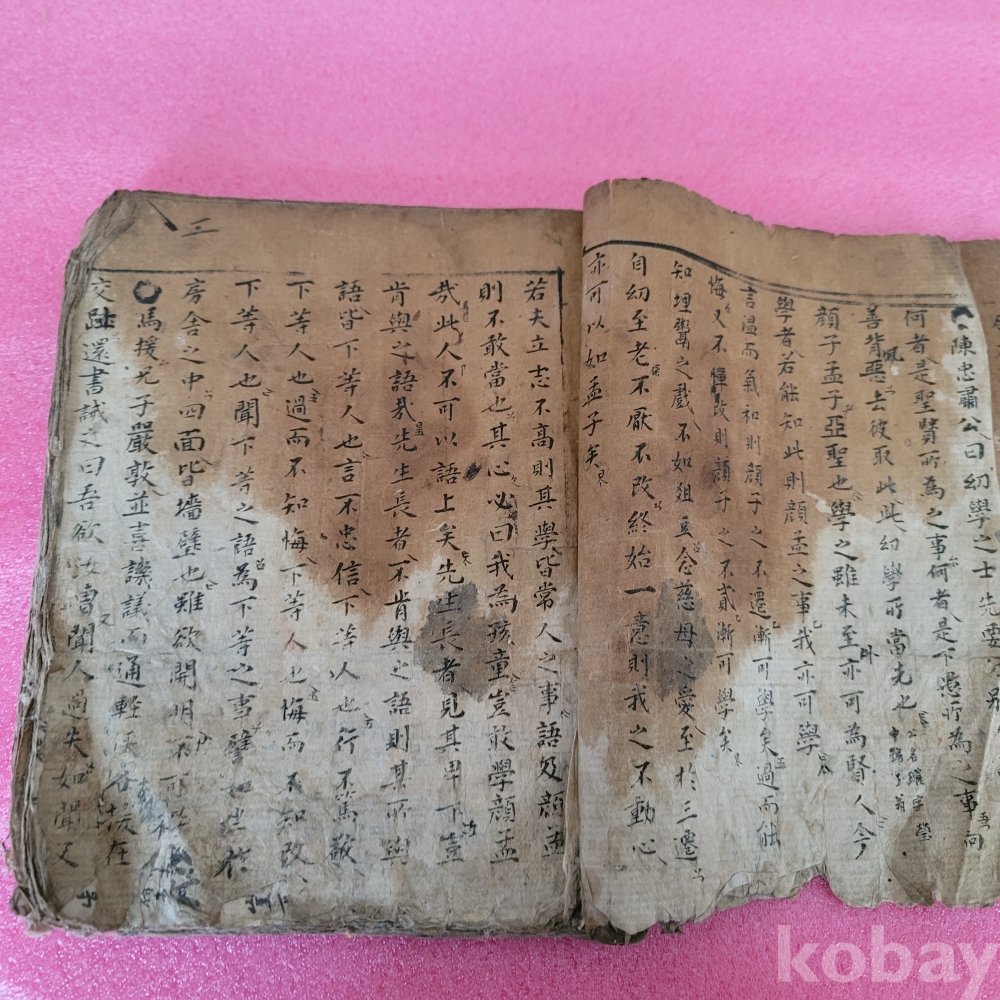 陳忠肅公曰幼學之士先要
何者是聖賢所為之事何者是下愚所為之事向
善背惡去彼取此此幼學所當先也
公名瓘字瑩
中號了翁
顏子孟子亞聖也學之雖未至亦可為賢人今
學者若能知此則顏孟之事我亦可學
言溫而氣和則顏子之不遷漸可學矣過而能
悔又不憚改則顏子之不貳漸可學矣
知埋鬻之戲不如俎豆念慈母之愛至於三遷
自幼至老不厭不改終始一意則我之不動心
亦可以如孟子矣
三
若夫立志不高則其學皆常人之事語及顏孟
則不敢當也其心必曰我為孩童豈敢學顏孟
哉此人不可以語上矣先生長者見其卑下豈
肯與之語哉先生長者不肯與之語則其所與
語皆下等人也言不忠信下等人也行不篤敬
下等人也過而不知悔下等人也悔而不知改
下等人也聞下等之語為下等之事譬如坐於
房舍之中四面皆墻壁也雖欲開明不可
馬援兄子嚴敦並喜譏議而通輕俠客援在
交趾還書誡之曰吾欲汝曹聞人過失如聞父
kobay